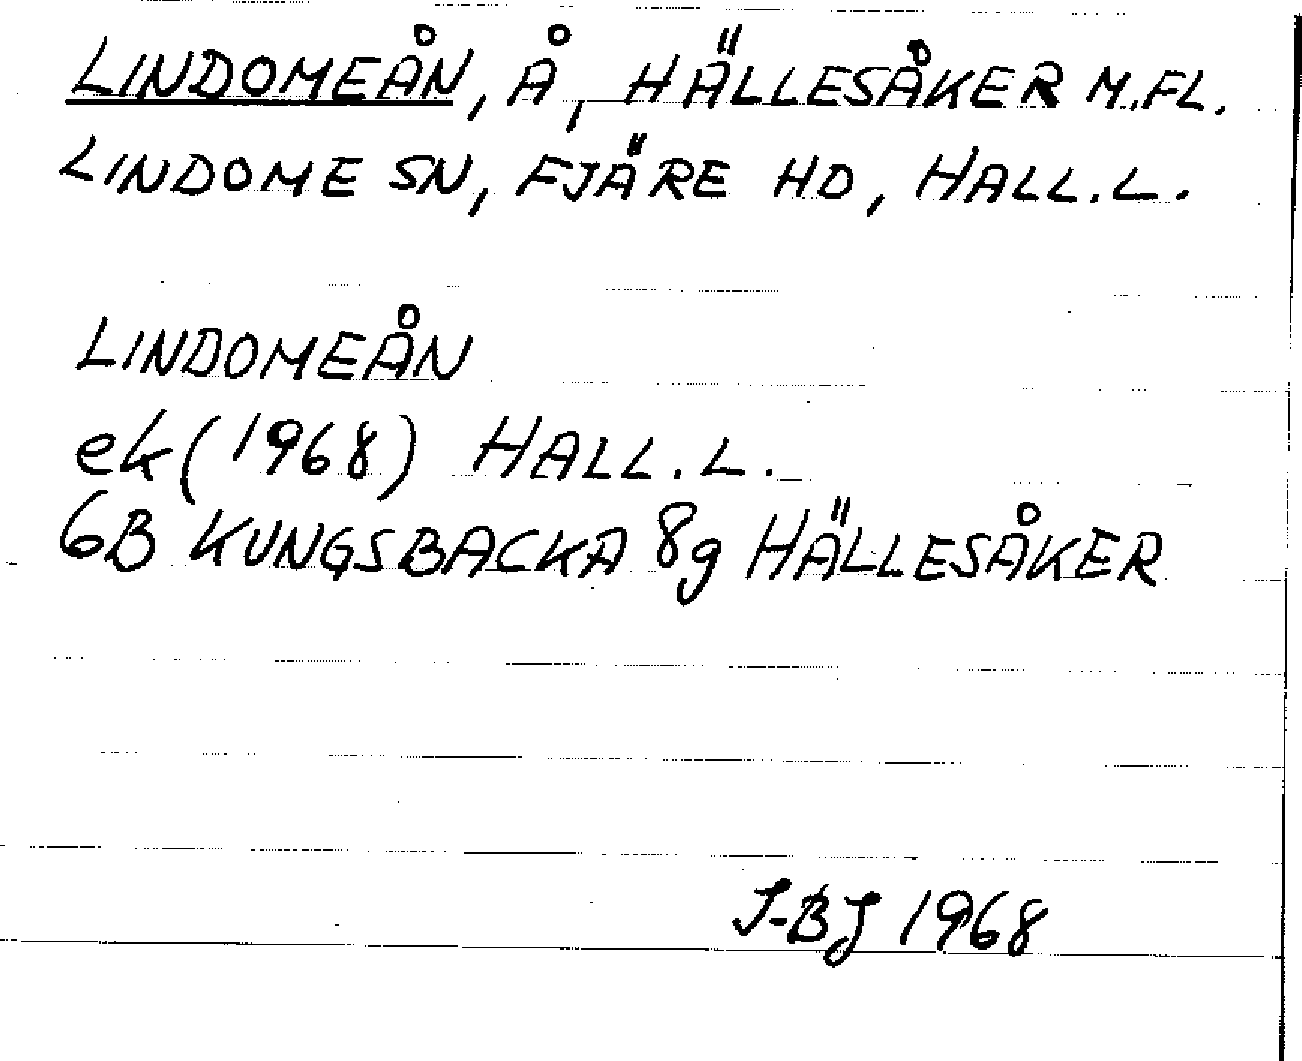 LINDOMEÅN, Å, HÄLLESÅKER M.FL.
LINDOME SN, FJÄRE HD, HALL.L.
LINDOMEÅN
ek(1968) HALL.L.
6B KUNGSBACKA 8g HÄLLESÅKER
I-BJ 1968